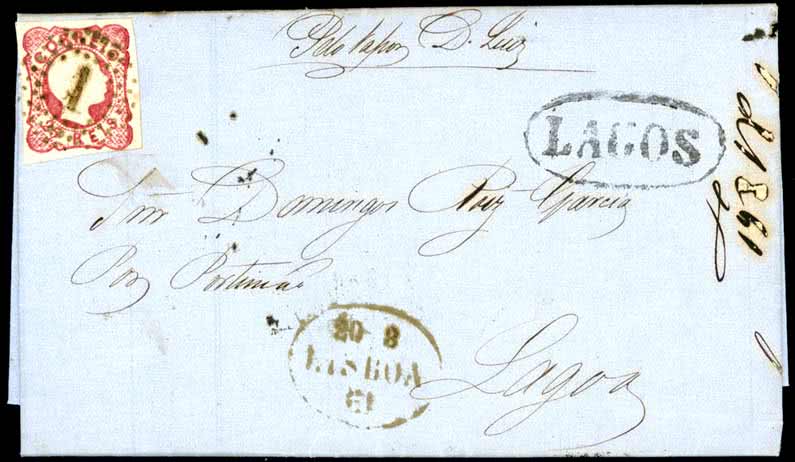 CORREIO
1
25 REIS
Pelo Vapor D. Luiz
LAGOS
1861
Snr Domingos Ruiz Garcia
Por Portimão
20 8
LISBOA
61
Lagoa